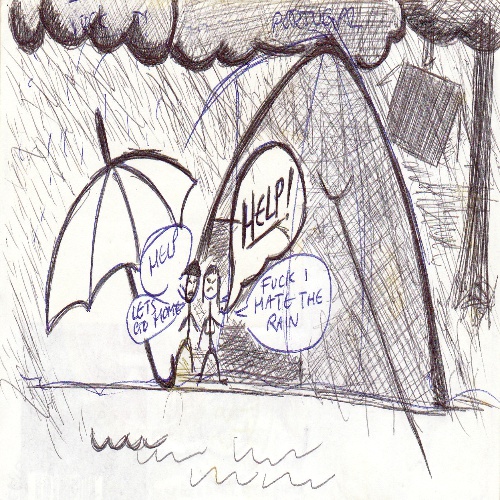 PORTUGAL
HELP!
HELP
LETS
GO HOME
FUCK I
HATE THE
RAIN